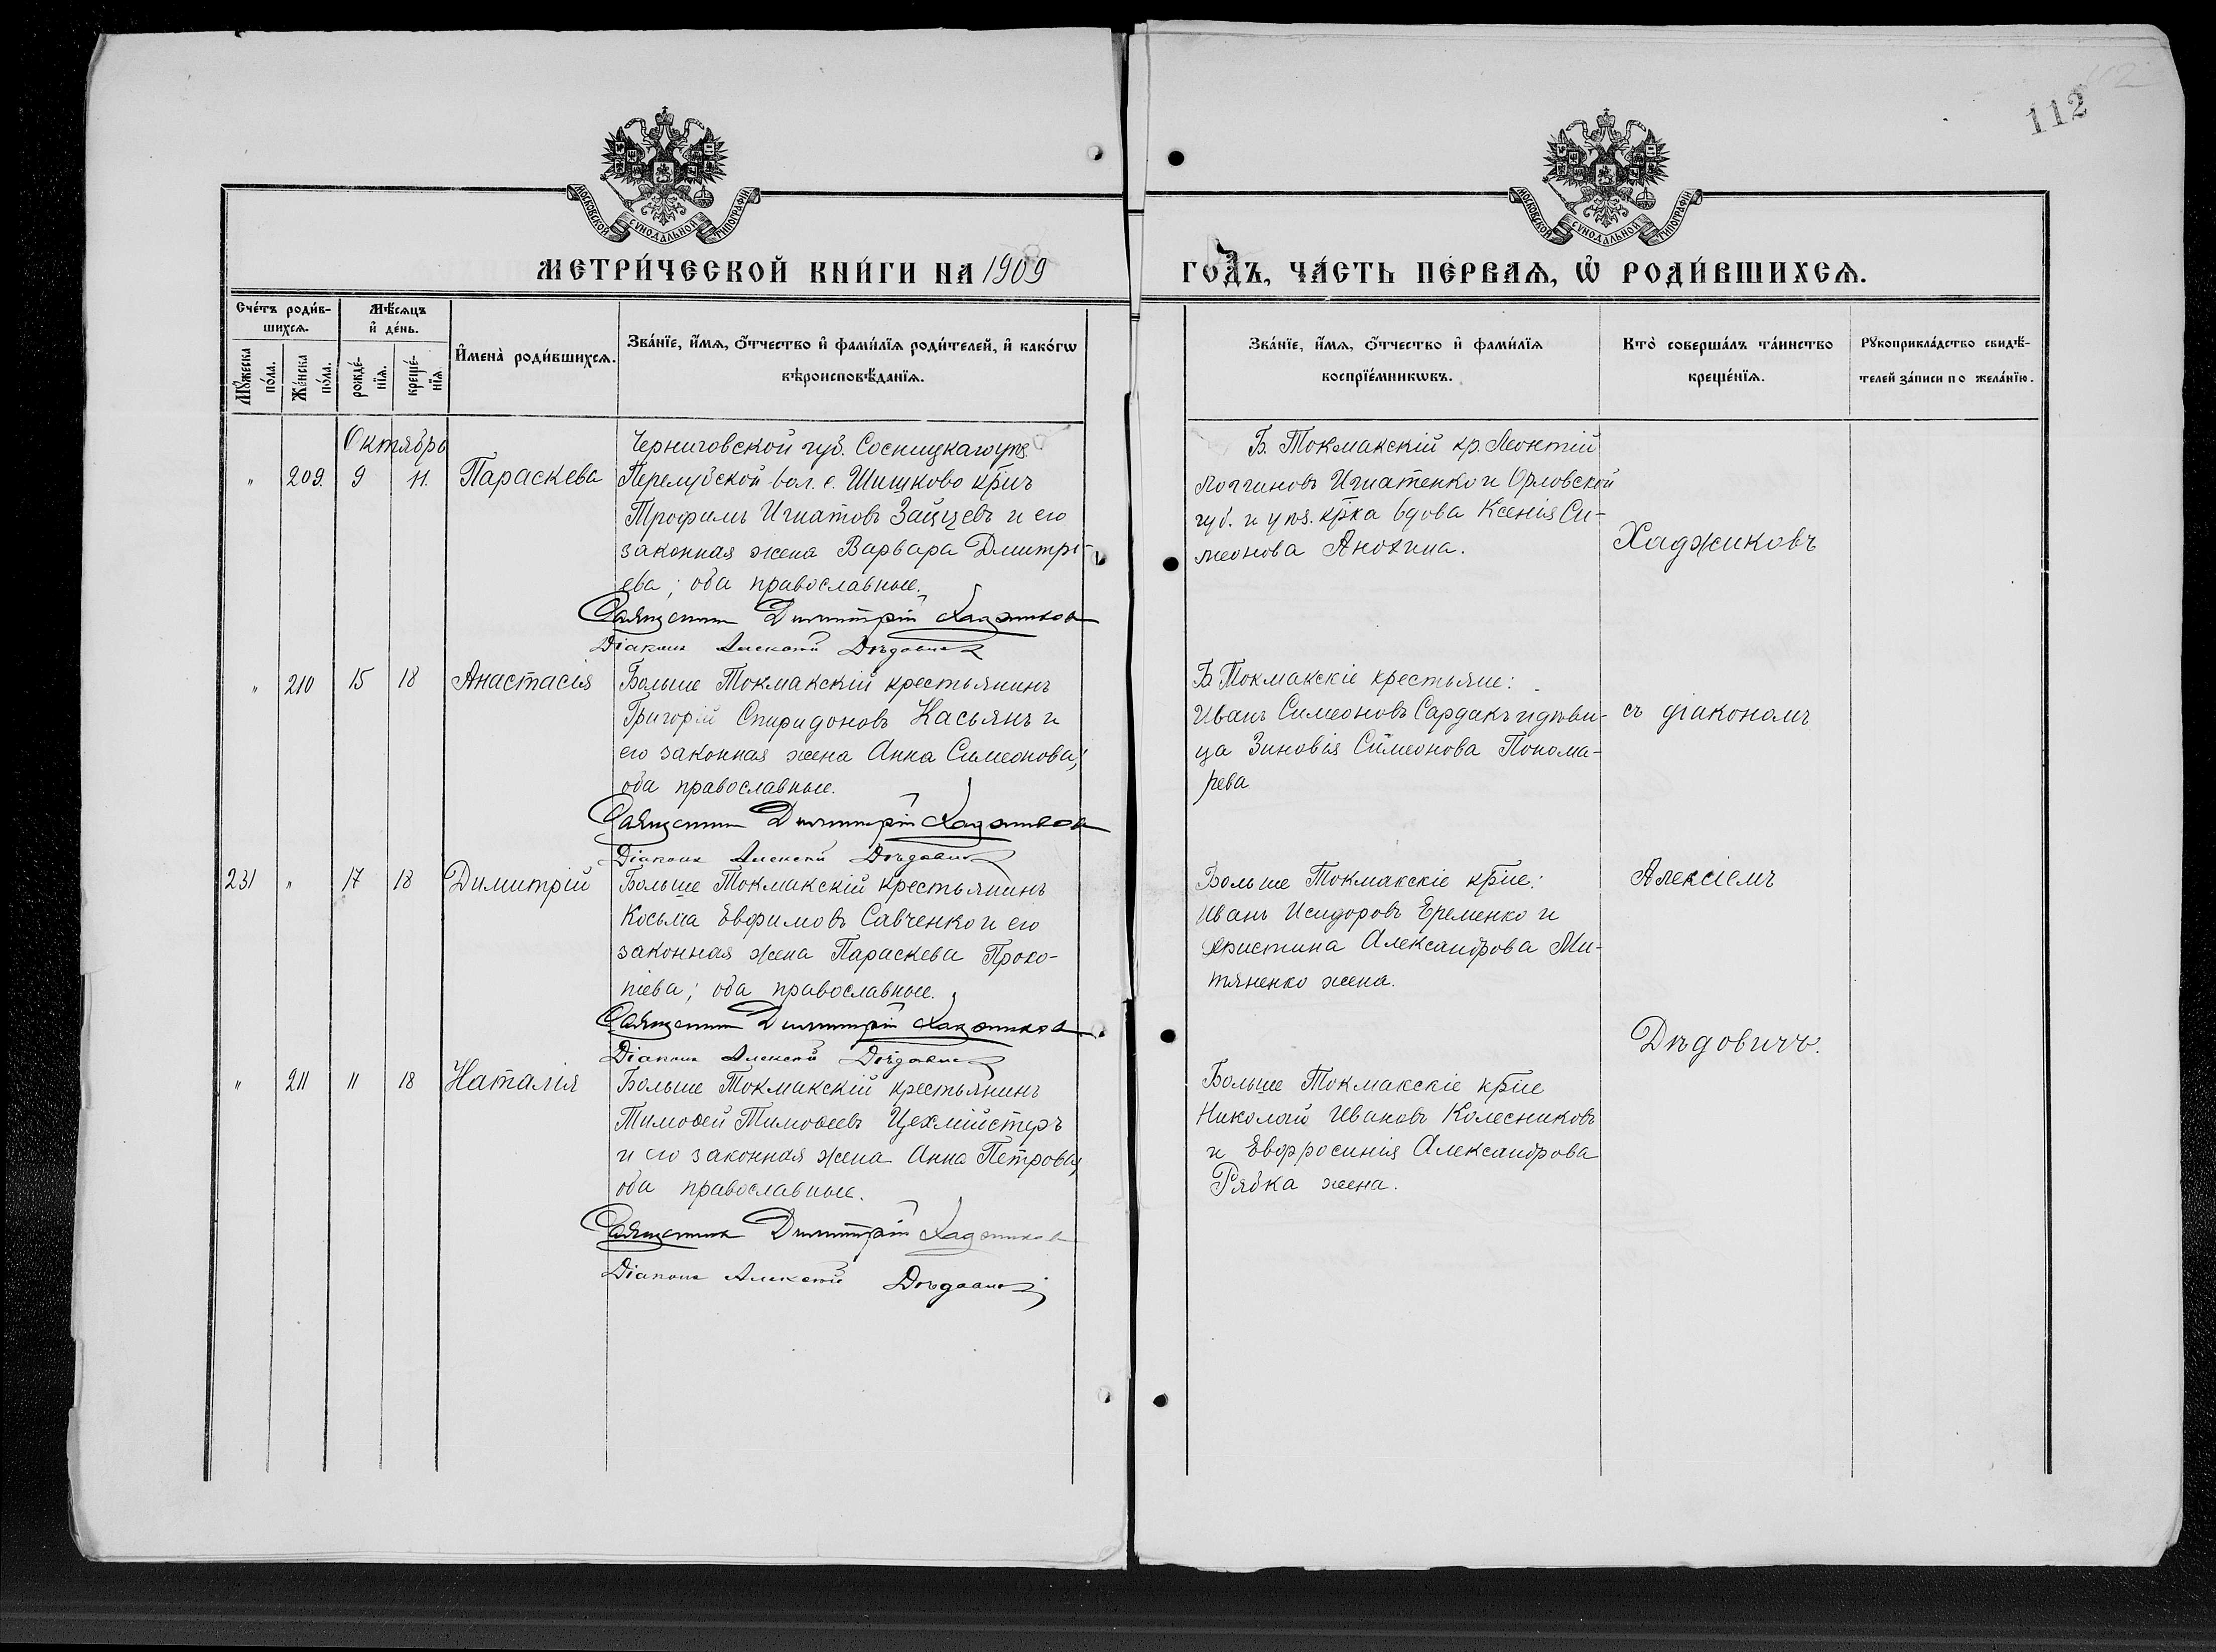 112
МОСКОВСКОЙ СѴНОДАЛЬНОЙ ТИПОГРАФІИ
МОСКОВСКОЙ СѴНОДАЛЬНОЙ ТИПОГРАФІИ
МЕТРИ́ЧЕСКОЙ КНИ́ГИ НА 1909
ГО́ДЪ, ЧА́СТЬ ПЕ́РВАѦ, Ѡ҆ РОДИ́ВШИХСѦ.
Сче́тъ роди́в-
шихсѧ.
Мꙋ́жеска
по́ла.
Же́нска
по́ла.
Мѣ́сѧцъ
и҆ де́нь.
рожде́-
нїѧ.
креще́-
нїѧ.
И҆мена̀ роди́вшихсѧ.
Зва́нїе, и҆́мѧ, ѻ҆́тчество и҆ фами́лїѧ роди́телей, и҆ како́гѡ
вѣроисповѣ́данїѧ.
Зва́нїе, и҆́мѧ, ѻ҆́тчество и҆ фами́лїѧ
воспрїе́мникѡвъ.
Кто̀ соверша́лъ та́инство
креще́нїѧ.
Рꙋкоприкла́дство свидѣ́-
телей за́писи по жела́нїю.
Октябрь
" 209. 9 11. Параскева
Черниговской губ. Сосницкаго уѣз.
Перелубской вол. с. Шишково кр̃нъ
Трофимъ Игнатовъ Зайцевъ и его
законная жена Варвара Дмитрі-
ева; оба православные.
Священник Димитрій Хаджиков
Діаконъ Алексѣй Дѣдович
Б. Токмакскій кр. Леонтій
Логгиновъ Игнатенко и Орловской
губ. и уѣз. кр̃ка вдова Ксенія Си-
меонова Анохина.
Хаджиковъ
" 210 15 18 Анастасія
Больше Токмакскій крестьянинъ
Григорій Спиридоновъ Касьянъ и
его законная жена Анна Симеонова;
оба православные.
Священник Димитрій Хаджиков
Діаконъ Алексѣй Дѣдович
Б Токмакскіе крестьяне:
Иванъ Симеоновъ Сардакъ и дѣви-
ца Зиновія Симеонова Понома-
рева
съ діакономъ
231 " 17 18 Димитрій
Больше Токмакскій крестьянинъ
Косьма Евфимовъ Савченко и его
законная жена Параскева Проко-
піева; оба православные.
Священник Димитрій Хаджиков
Діаконъ Алексѣй Дѣдович
Больше Токмакскіе кр̃не:
Иванъ Исидоровъ Еременко и
Христина Александрова Ми-
тяненко жена.
Алексіемъ
Дѣдовичъ.
" 211 11 18 Наталія
Больше Токмакскій крестьянинъ
Тимоѳей Тимоѳеевъ Цехмійстеръ
и его законная жена Анна Петрова;
оба православные.
Священник Димитрій Хаджиков
Діаконъ Алексѣй Дѣдович
Больше Токмакскіе кр̃не
Николай Ивановъ Колесниковъ
и Евфросинія Александрова
Рябка жена.